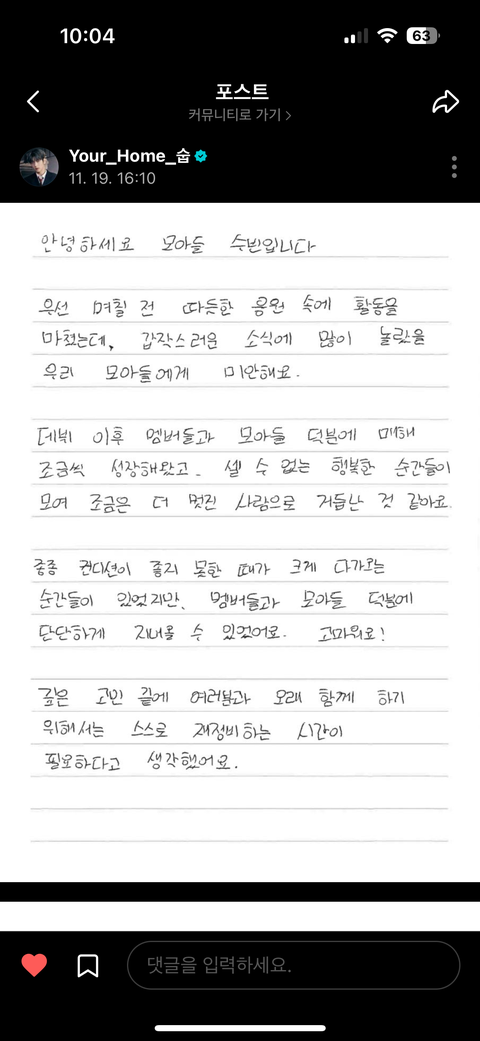 10:04
63
포스트
커뮤니티로 가기 >
Your_Home_숩
11. 19. 16:10
안녕하세요 모아들 수빈입니다
우선 며칠 전 따듯한 응원 속에 활동을
마쳤는데, 갑작스러운 소식에 많이 놀랐을
우리 모아들에게 미안해요.
데뷔 이후 멤버들과 모아들 덕분에 매해
조금씩 성장해왔고. 셀 수 없는 행복한 순간들이
모여 조금은 더 멋진 사람으로 거듭난 것 같아요.
종종 컨디션이 좋지 못한 때가 크게 다가오는
순간들이 있었지만, 멤버들과 모아들 덕분에
단단하게 지내올 수 있었어요. 고마워요!
깊은 고민 끝에 여러분과 오래 함께 하기
위해서는 스스로 재정비하는 시간이
필요하다고 생각했어요.
댓글을 입력하세요.